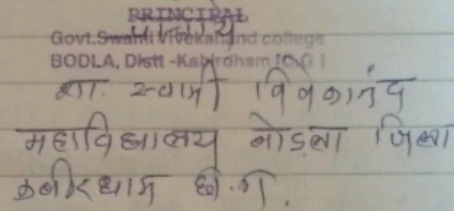 PRINCIPAL
प्राचार्य
Govt.Swami Vivekanand college
BODLA, Distt-Kabirdham (C.G.)
शा. स्वामी विवेकानंद
महाविद्यालय बोड़ला जिला
कबीरधाम छ.ग.